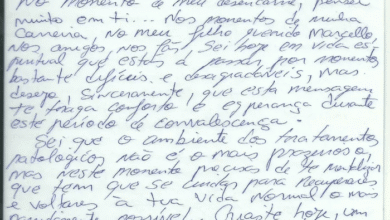 No momento de meu desencarne, pensei
muito em ti... Nos momentos de minha
Carreira, no meu filho querido Marcello,
nos amigos, nos fãs! Sei hoje em vida es
piritual que estás a passar por momentos
bastante difíceis e desagradáveis, mas
desejo, sinceramente, que esta mensagem
te traga conforto e esperança durante
este período de convalescença.
Sei que o ambiente dos tratamentos
patológicos não é o mais prazeroso
mas neste momento precisas de te mentalizar
que tem que se cuidar para recuperares
e voltares à tua vida normal o mais
possível. Quaste hoje, em